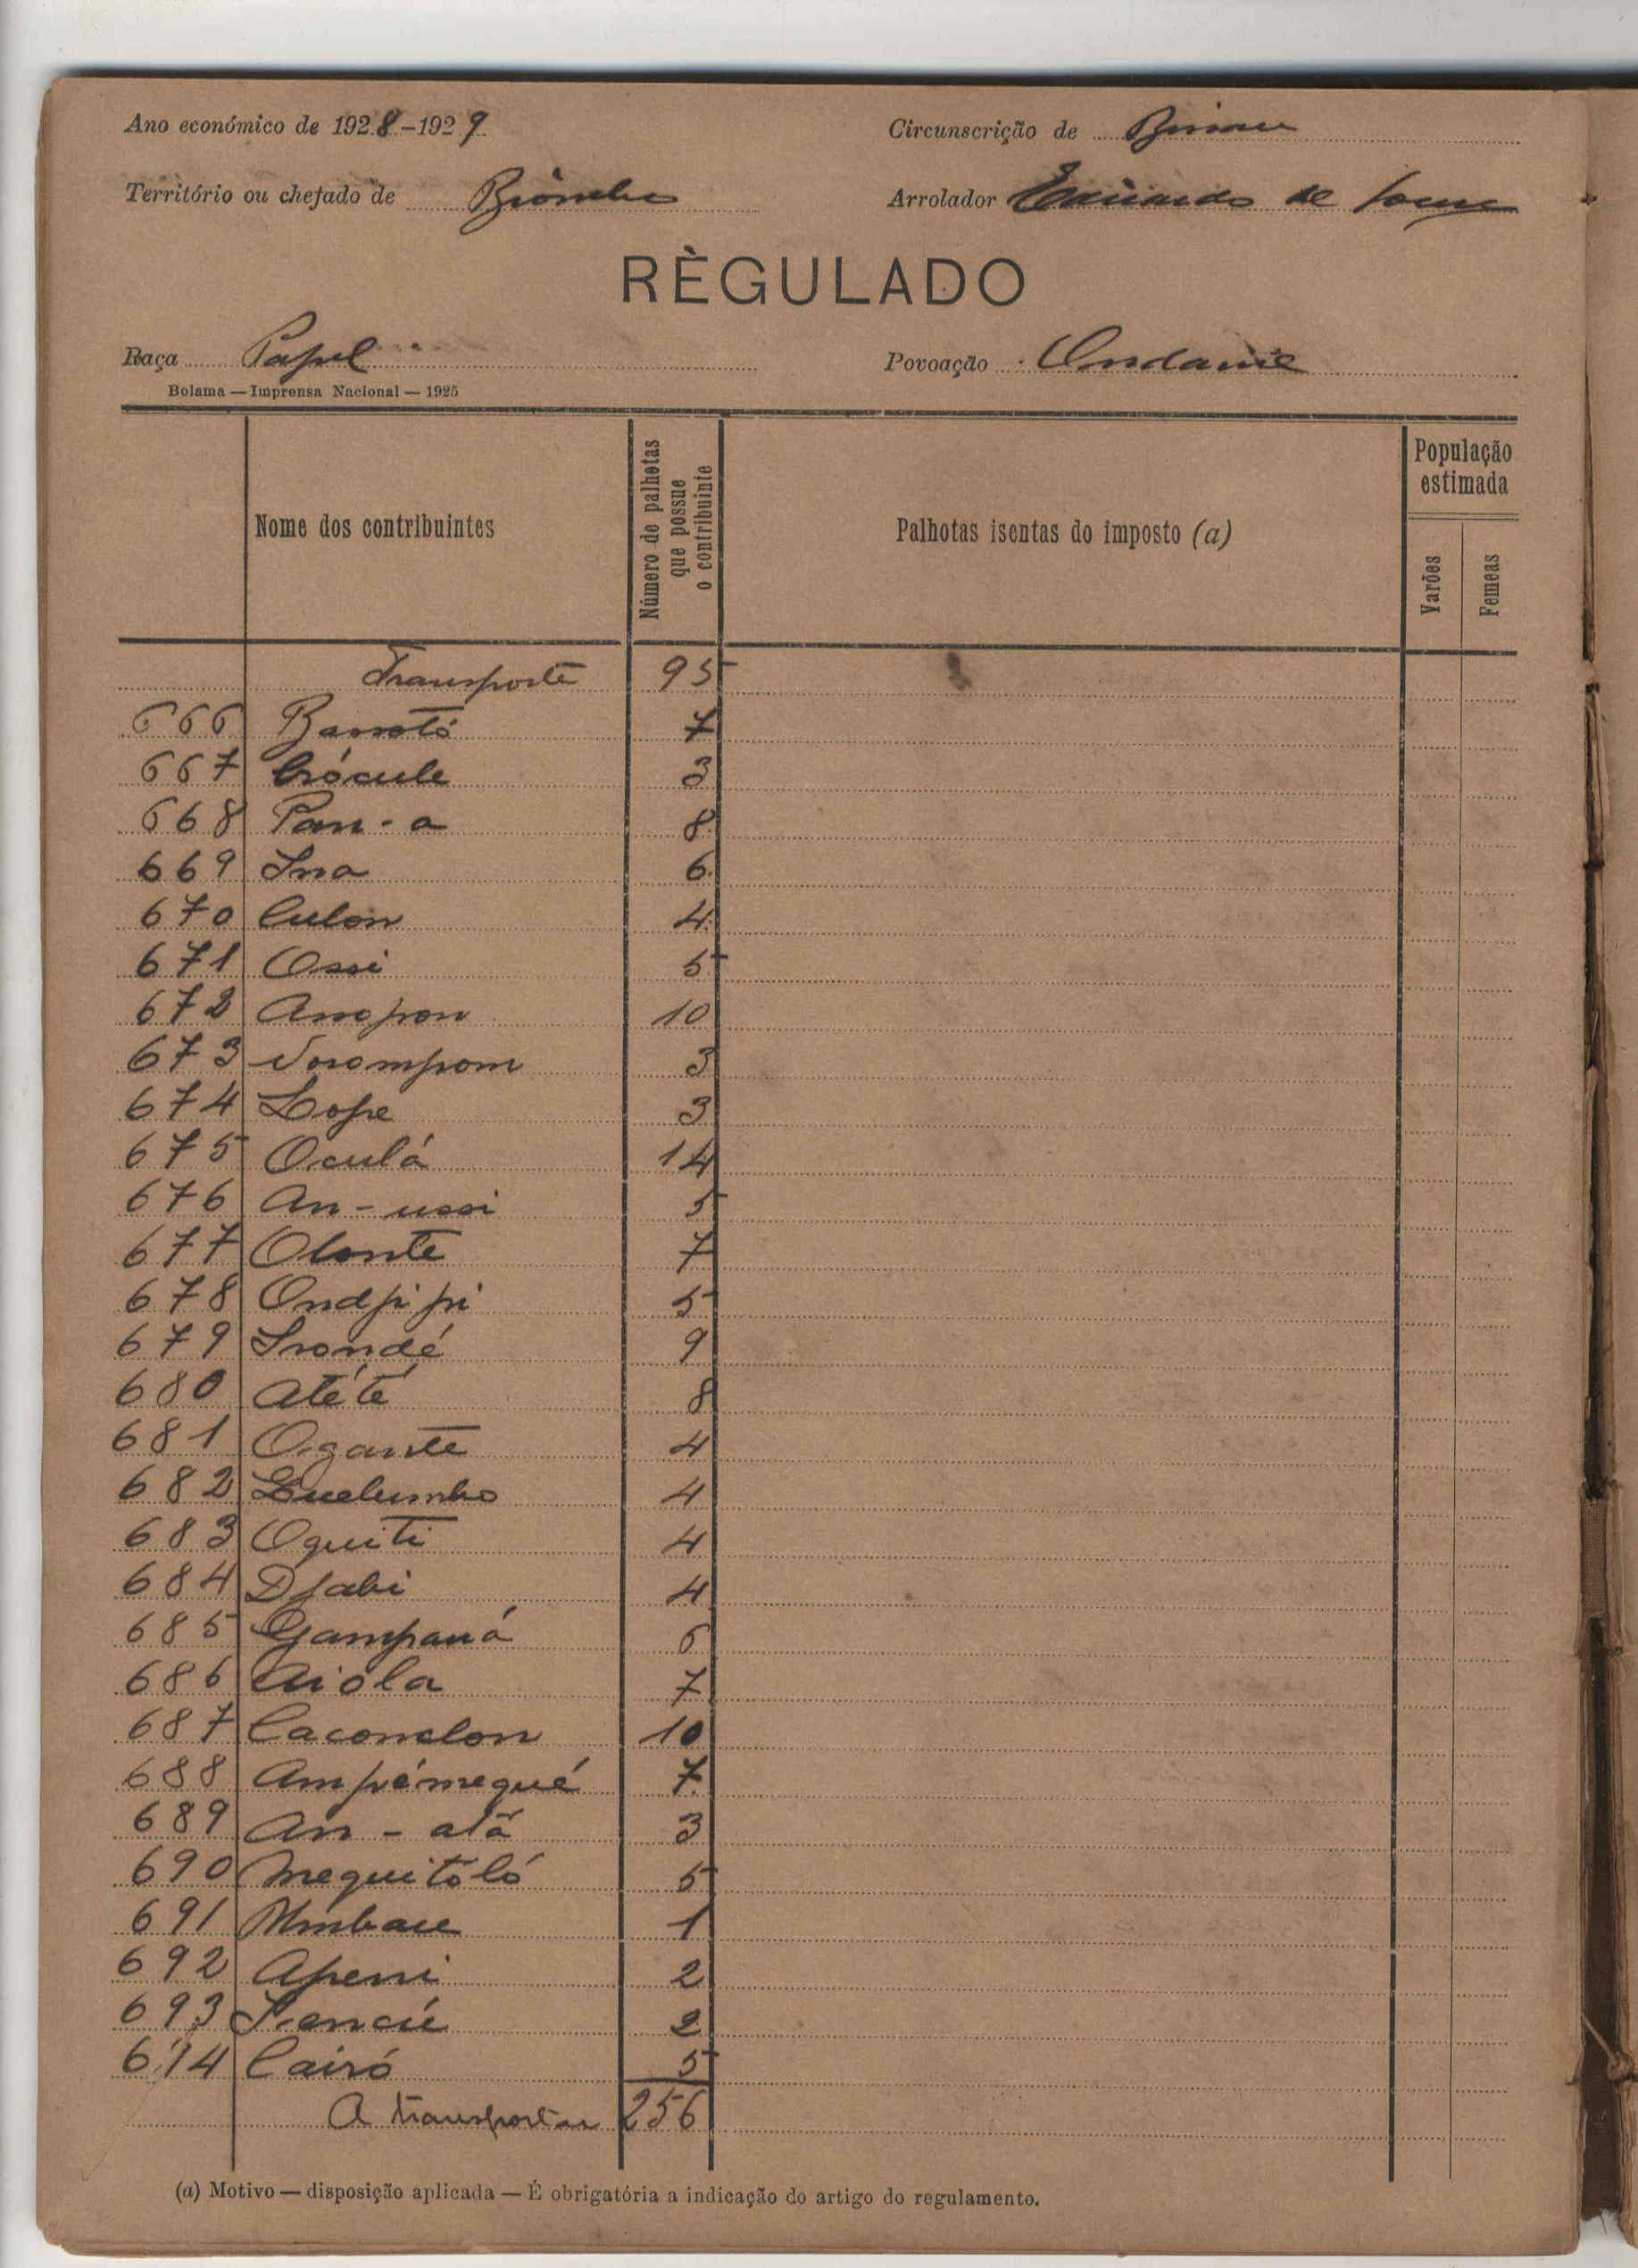 Ano económico de 1928-1929 Circunscrição de Bissau
Território ou chefado de Biombo Arrolador Eduardo de
RÈGULADO
Raça Papel Povoação Ondame
Bolama — Imprensa Nacional — 1925
Nome dos contribuintes Número de palhotas que possue o contribuinte Palhotas isentas do imposto (a) População estimada Varões Femeas
Transporte 95
666 7
667 3
668 Pan-a 8
669 6
670 Culon 4
671 Ossi 5
672 Anopon 10
673 3
674 Lope 3
675 Oculá 14
676 An-ussi 5
677 Olonte 7
678 Ondpipi 5
679 9
680 Atété 8
681 Ogante 4
682 4
683 Oquiti 4
684 Djabi 4
685 6
686 Aiola 7
687 10
688 Ampémequé 7
689 An-atá 3
690 Mequitóló 5
691 1
692 Apeni 2
693 2
694 Cairó 5
A transportar 256
(a) Motivo — disposição aplicada — É obrigatória a indicação do artigo do regulamento.